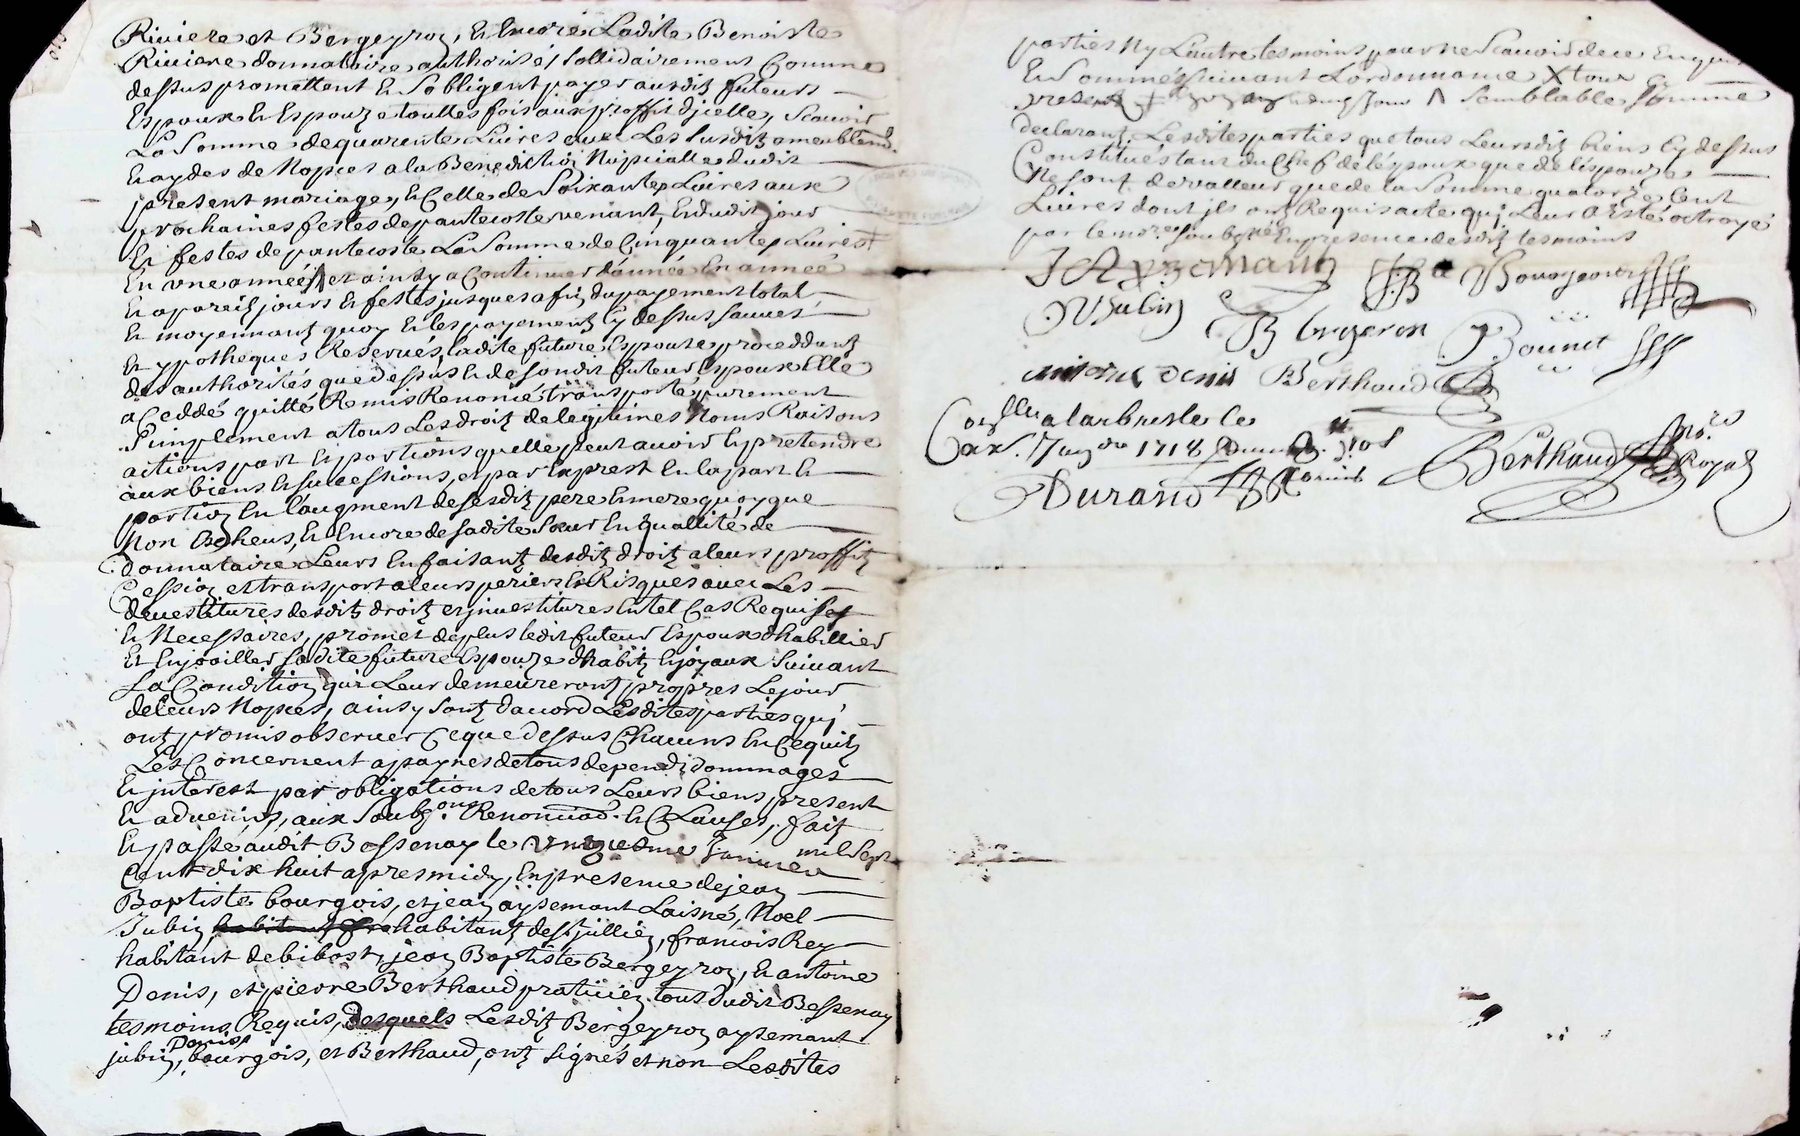 Riviere et Bergeyron, et encore Ladite Benoiste
Riviere donnataire authorisés sollidairement Comme
dessus promettent et sobligent payer ausdits futeurs
Espoux et Espouze touttes fois aux proffit djcelle, Scauoir
La Somme de quarente Liures auec Les susdits ameublem.
et aydes de Nopces a la Benediction Nupcialle dudit
present mariage, et Celle de Soixante Liures aux
prochaines festes de pantecoste venant, et dudit jour
et festes de pantecoste La Somme de Cinquante Liures
En vne année, et ainsy a Continuer dannée En année
et a pareils jours et festes jusques a fin du payement total
et moyennant quoy et les payements Cy dessus sauues
et ypotheques Reserués, ladite future Espouze proceddant
des authorités que dessus et de sondit futeur Espoux Elle
a Ceddé quitté Remis Renoncé transporté purement
Simplement a tous Les droits de legitimes Noms Raisons
actions part et portions quelle peut auoir et pretendre
aux biens et successions, et par Exprest En la part et
portion En laugment de sesdits pere et mere quoy que
Non Escheus, et Encore de sadite Sœur En quallité de
donnataire Leurs En faisant desdits droits a leurs proffits
Cession et transport a leurs perier et Risques auec Les
deuestitures desdits droits et jnuestitures En tel Cas Requises
et Necessaires, promet de plus ledit futeur Espoux dhabillier
Et Enjoailler sadite future Espouze dhabits et joyaux Suiuant
La Condition qui Leur demeureront propres Le jour
de leurs Nopces, ainsy sont daccord Lesdites parties quj
ont promis obseruer Ce que dessus Chacuns En Ce quils
Les Concernent a paynes de tous depend dommages
Et jnterest par obligations de tous Leurs biens, present
et aduenirs, aux Soub.ons Renonciaõ. et Clauses, fait
Et passé audit Bessenay le vnziesme Januier mil Sept
Cent dix huit apres midy, En presence de jean
Baptiste bourgois, et jean aysemant Laisné, Noel
Jubin, habitants de St jullien, francois Rey
habitant de bibost, jean Baptiste Bergeyron, et antoine
Denis, et pierre Berthaud praticien tous dudit Bessenay
tesmoins Requis, Desquels Lesdits Bergeyron aysemant
jubin, Denis bourgois, et Berthaud, ont signés et non Lesdites
parties Ny Lautre tesmoins pour ne Scauoir de ce Enquis
Et Sommés Suiuant Lordonnance
semblable Somme
declarant Lesdites parties que tous Leursdits biens Cy dessus
Constitués tant du Chef de lespoux que de lespouze
Ne sont de valleur que de la Somme quatorze Cent
Liures dont jls ont Requis acte quj Leur a Esté octroyé
par le no.re soubsné En presence desdits tesmoins
J Ayzemant J B Bourgeois
N Jubin B Bergeron Bounet
antoine denis Berthaud
Con.llé a larbresle le
1718
Durand Berthaud no.re Royal